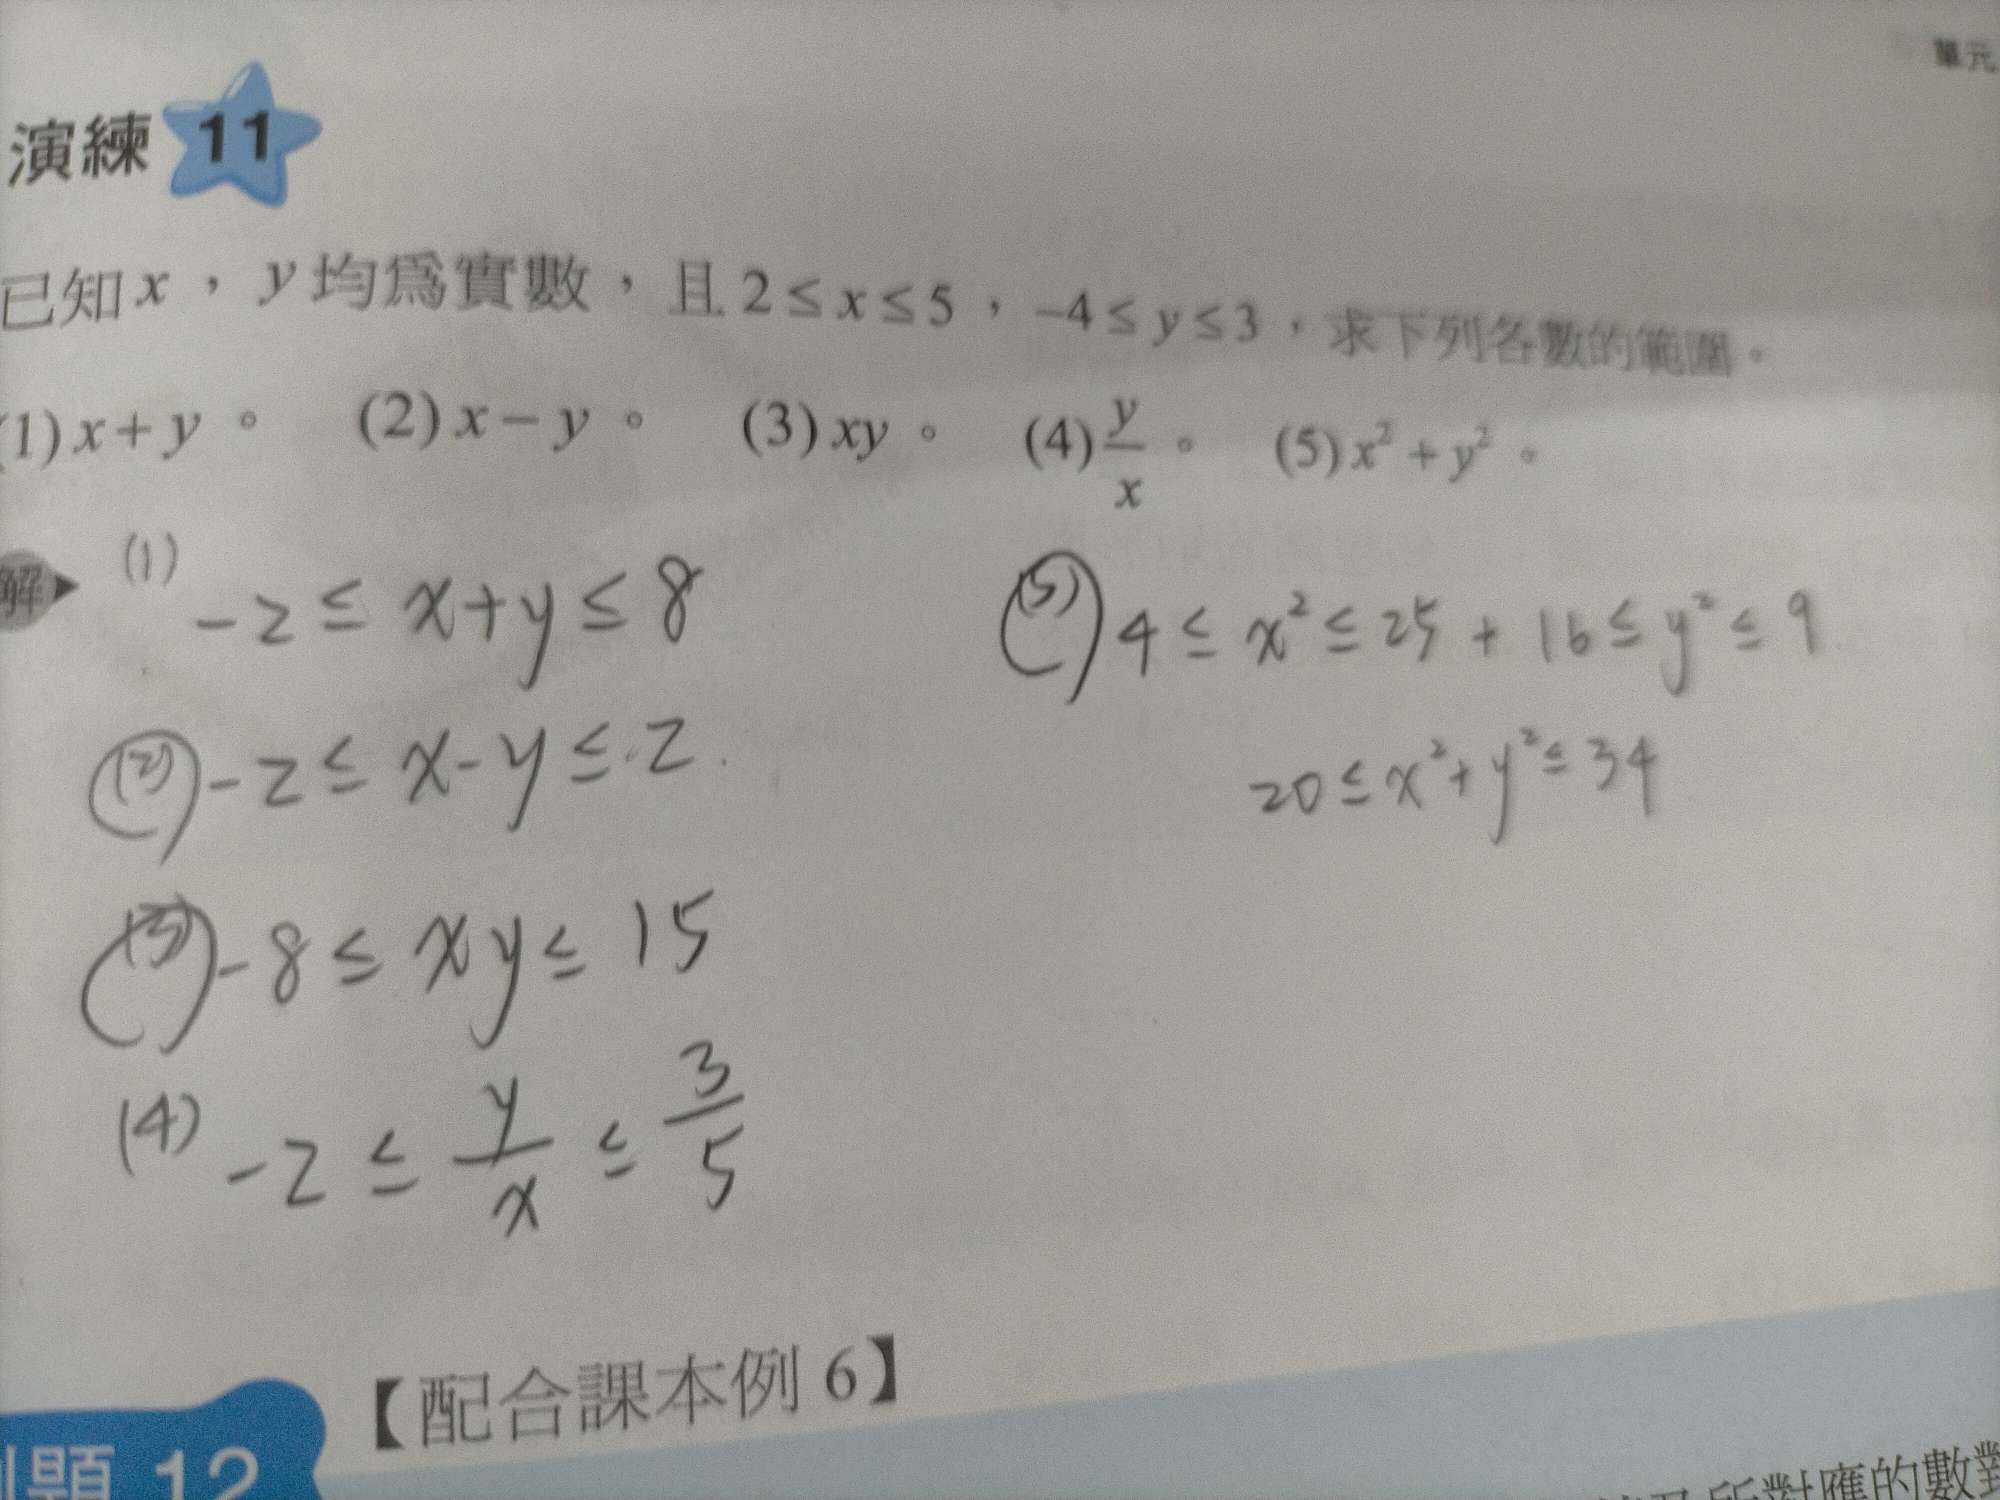 單元
演練 11
已知x，y均為實數，且2≤x≤5，-4≤y≤3，求下列各數的範圍。
(1)x+y。 (2)x-y。 (3)xy。 (4)y/x。 (5)x²+y²。
解
(1) -2≤x+y≤8
(2) -2≤x-y≤2
(3) -8≤xy≤15
(4) -2≤y/x≤3/5
(5) 4≤x²≤25+16≤y²≤9
20≤x²+y²≤34
【配合課本例6】
題 12
所對應的數對